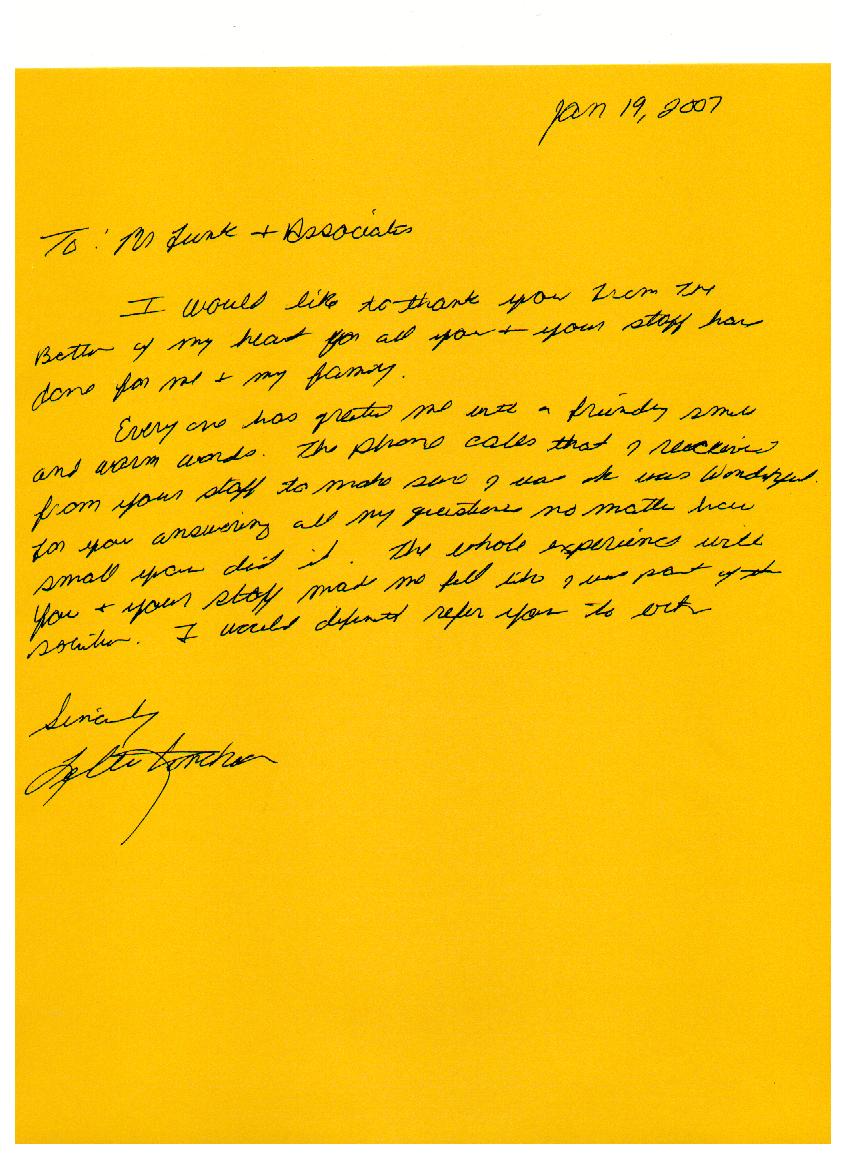 Jan 19, 2007
To: Mr Funk + Associates
I would like to thank you from the
Bottom of my heart for all you + your staff have
done for me + my family.
Every one has greeted me with a friendly smile
and warm words. The phone calls that I received
from your staff to make sure I was ok was Wonderful.
for you answering all my questions no matter how
small you did it. The whole experience with
You + your staff made me fell like I was part of the
solution. I would definitely refer you to
Sincerely